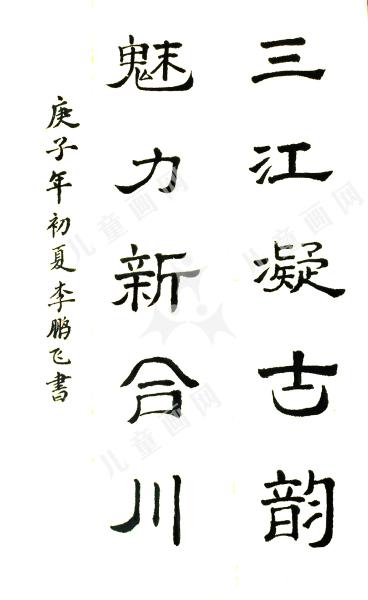 三江凝古韵
魅力新合川
庚子年初夏李鹏飞書
儿童画网
儿童画网
儿童画网
儿童画网